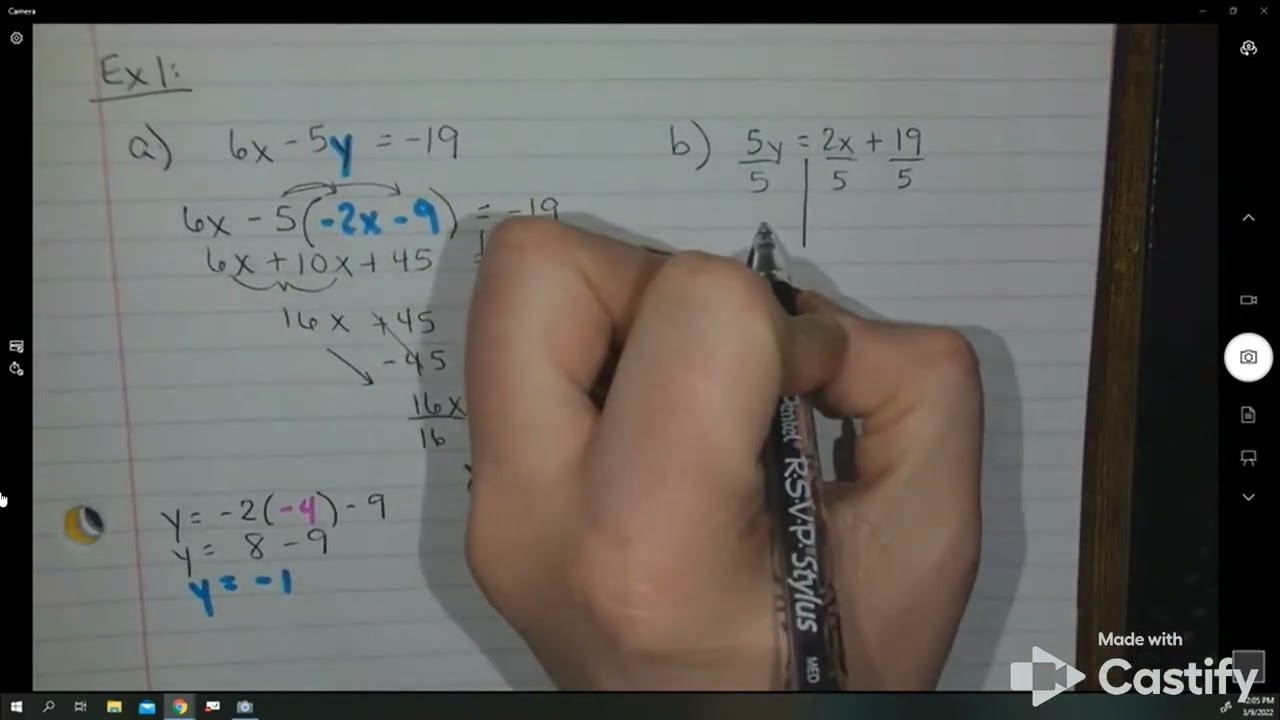 Camera
Ex 1:
a) 6x - 5y = -19
6x - 5(-2x - 9) = -19
6x + 10x + 45
16x + 45
- 45
16x
16
y = -2(-4) - 9
y = 8 - 9
y = -1
b) 5y = 2x + 19
5 5 5
Pentel R.S.V.P. Stylus MED
Made with
Castify
2:05 PM
3/9/2022